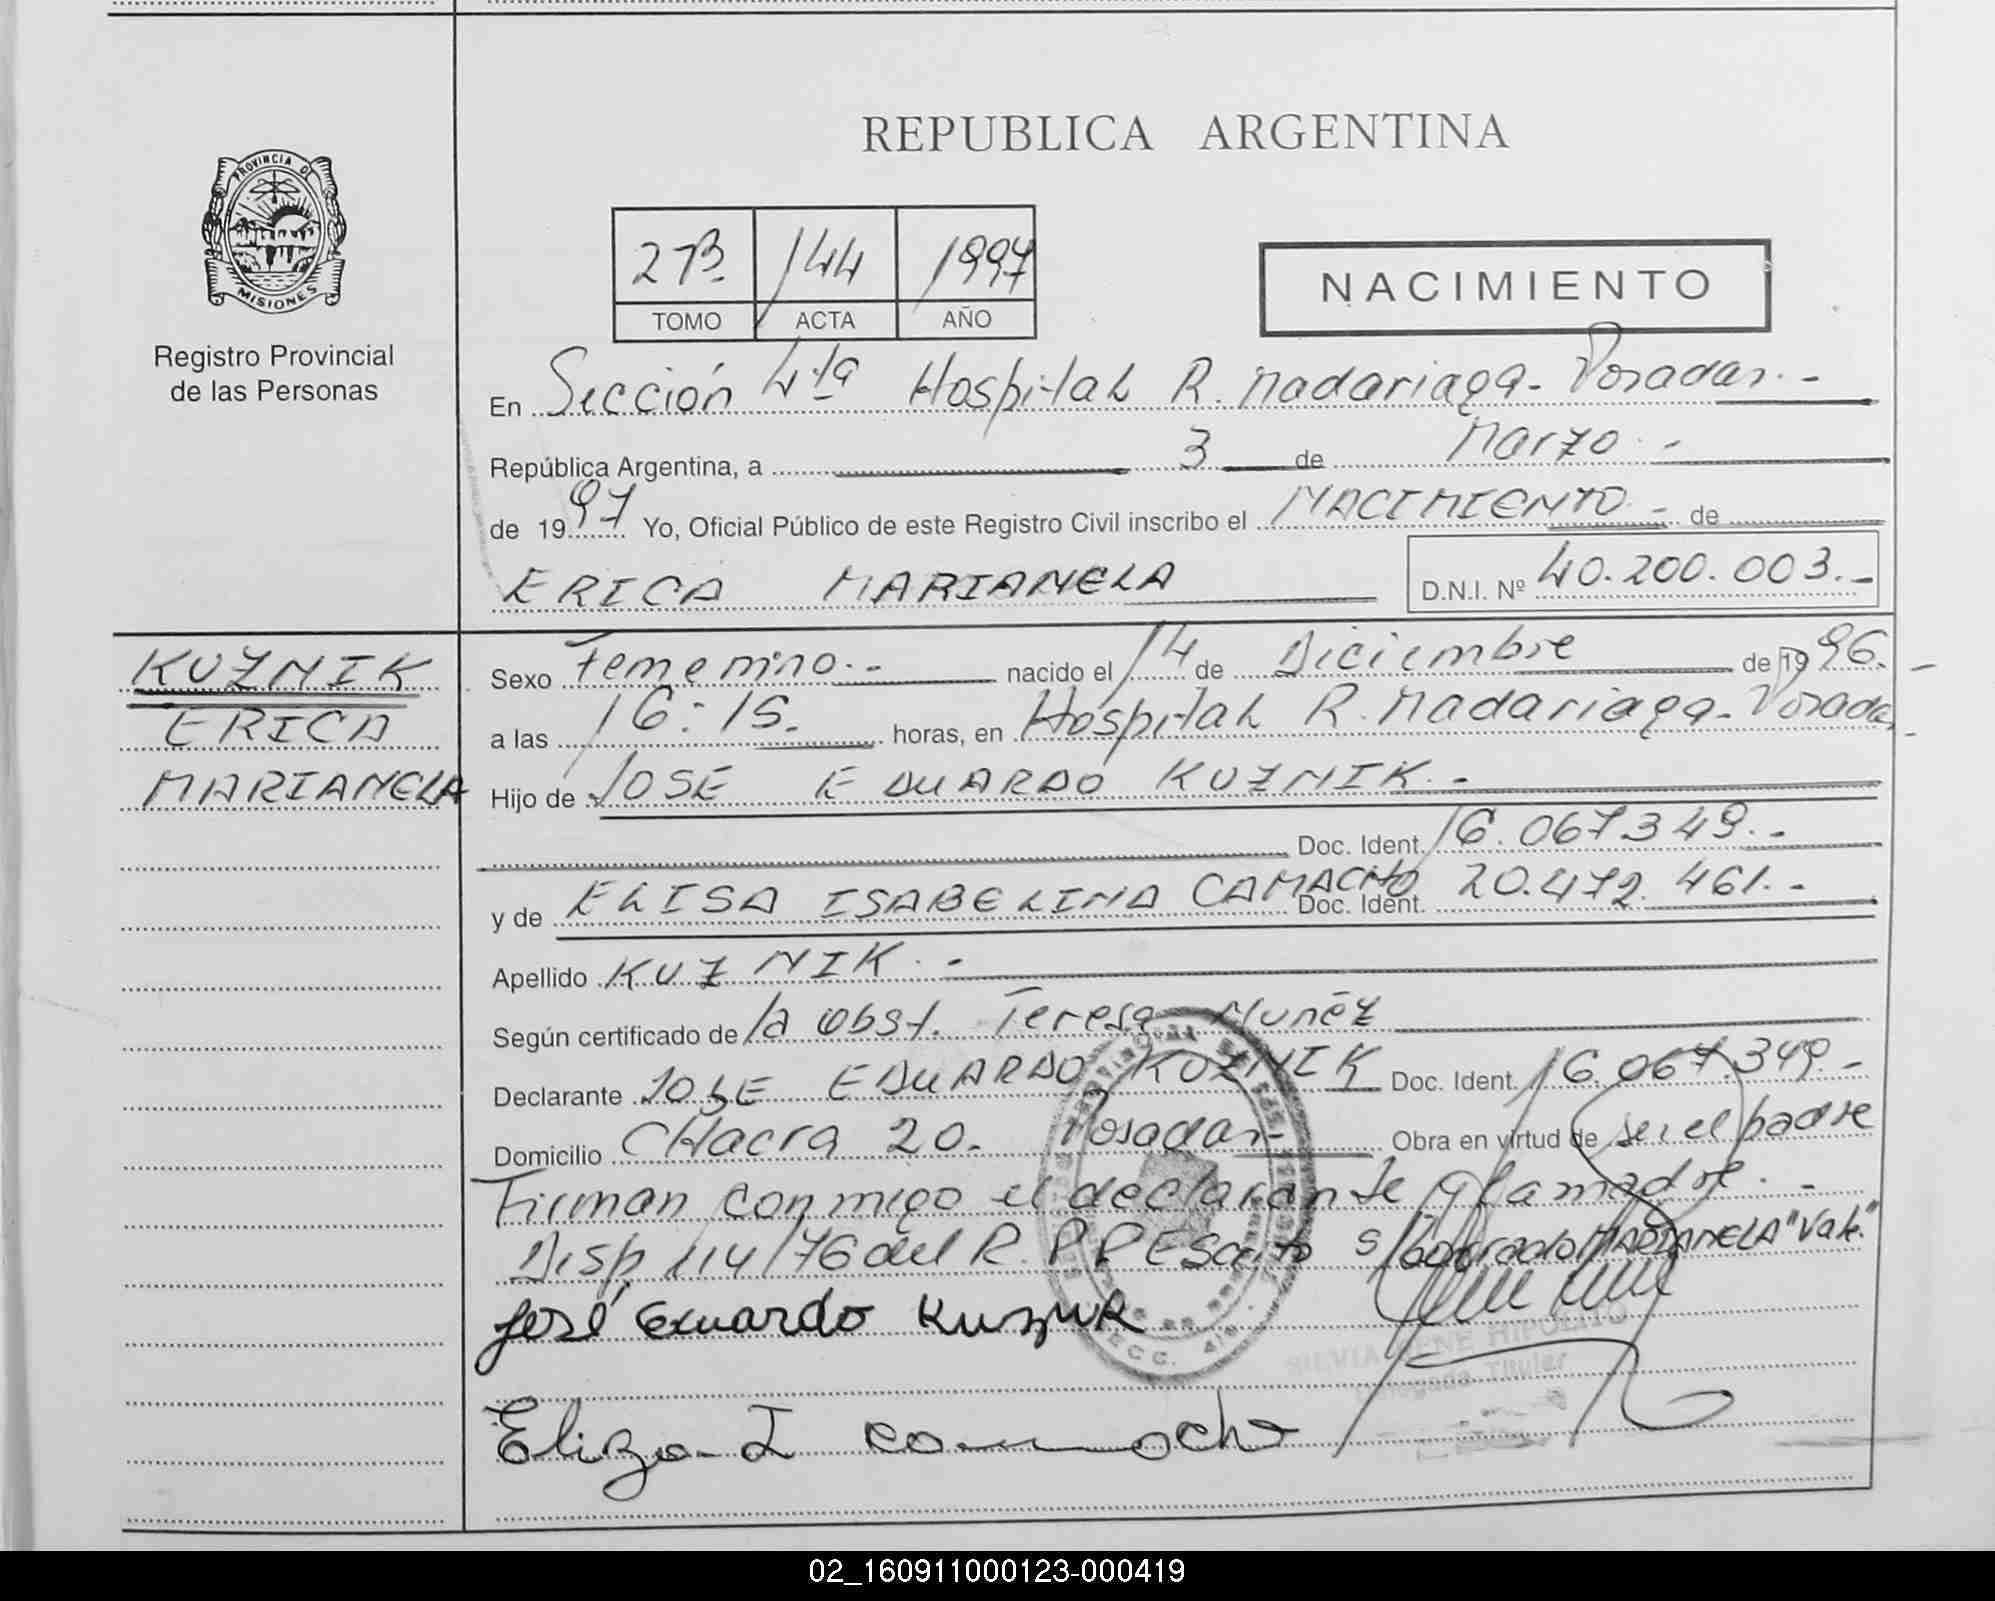 REPUBLICA ARGENTINA
PROVINCIA DE
MISIONES
Registro Provincial
de las Personas
2 B. 144 1997
TOMO ACTA AÑO
NACIMIENTO
En Sección 4ta Hospital R. Madariaga - Posadas. -
República Argentina, a 3 de Marzo. -
de 1997 Yo, Oficial Público de este Registro Civil inscribo el NACIMIENTO - de
ERICA MARIANELA D.N.I. Nº 40.200.003.-
KUZNIK
ERICA
MARIANELA
Sexo Femenino. - nacido el 14 de Diciembre de 1996. -
a las 16:15. horas, en Hospital R. Madariaga - Posadas -
Hijo de JOSE EDUARDO KUZNIK. -
Doc. Ident. 16.067.349. -
y de ELISA ISABELINA CAMACHO Doc. Ident. 20.472.461. -
Apellido KUZNIK. -
Según certificado de la Obst. Teresa Muñéz
Declarante JOSE EDUARDO KUZNIK Doc. Ident. 16.067.349. -
Domicilio CHacra 20. Posadas - Obra en virtud de ser el padre
Firman conmigo el declarante y la madre. -
Disp 114/76 del R.P.P Escrito s/borrado MARIANELA "Vale."
José Eduardo Kuznik
SILVIA RENE HIPOLITO
Delegada Titular
Eliza I camacho
02_160911000123-000419